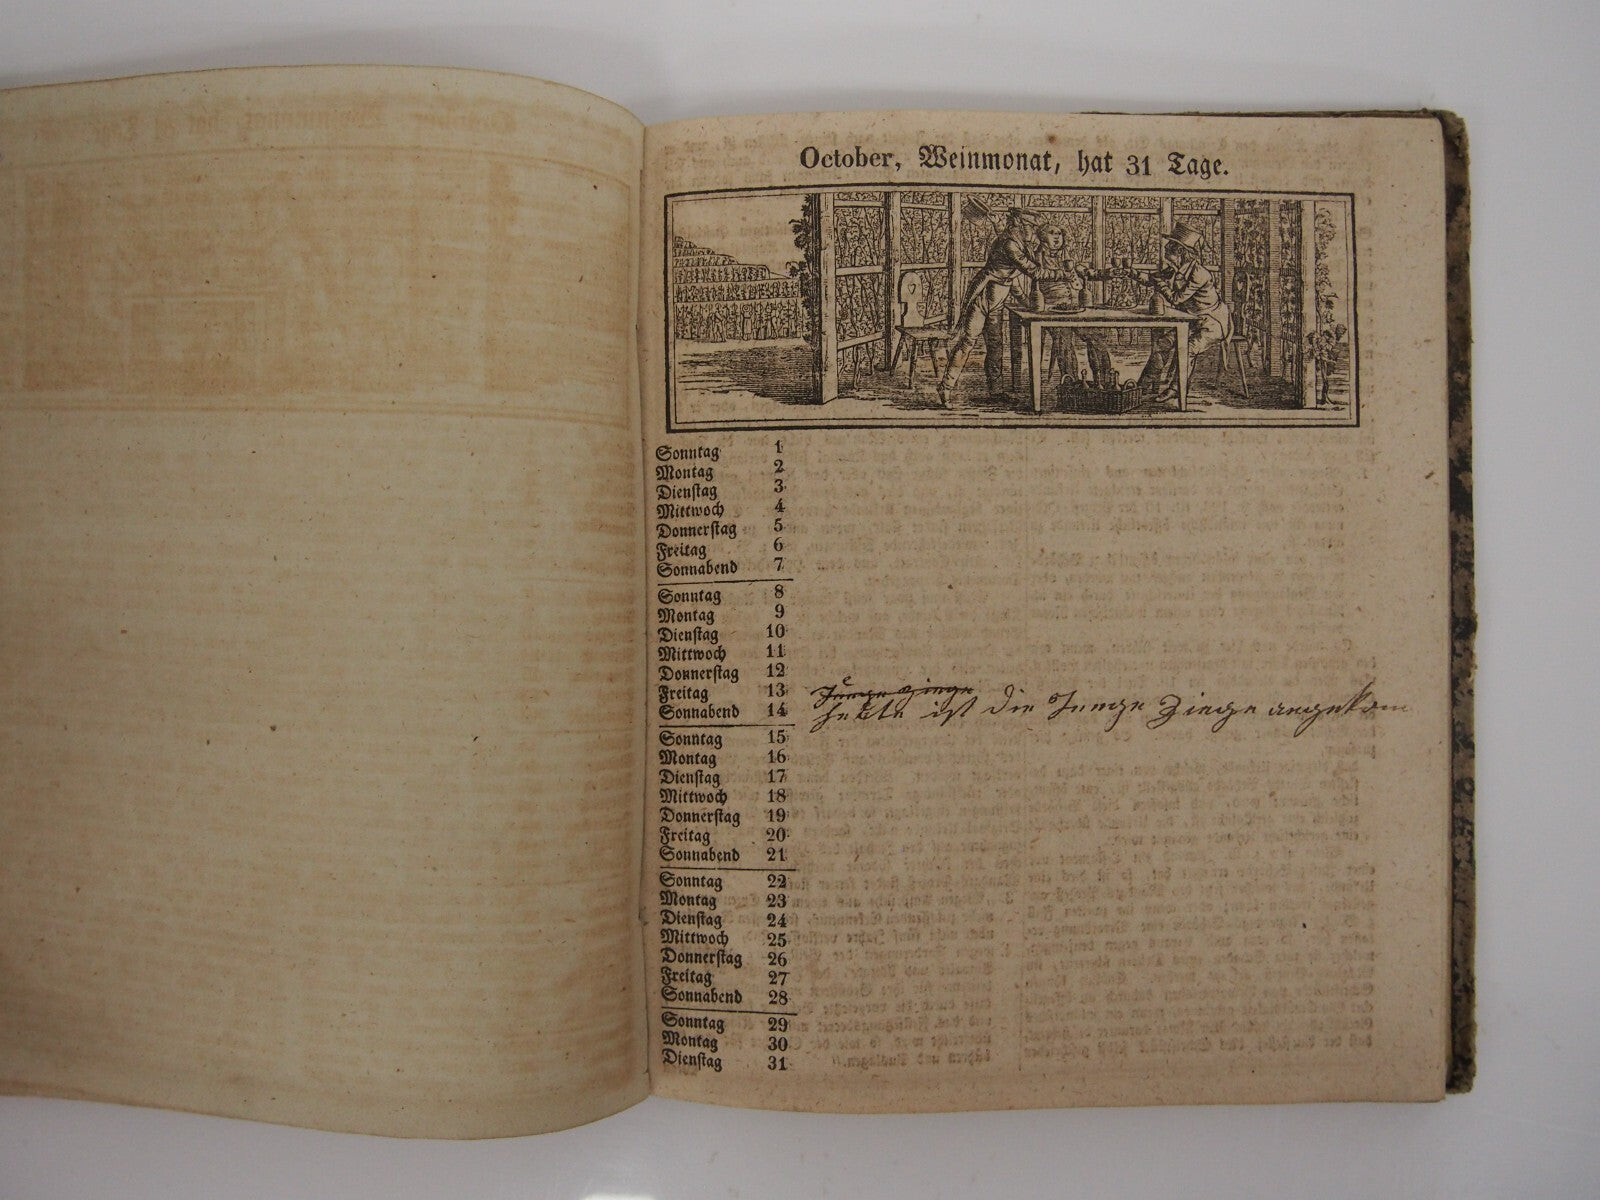 October, Weinmonat, hat 31 Tage.
Sonntag 1
Montag 2
Dienstag 3
Mittwoch 4
Donnerstag 5
Freitag 6
Sonnabend 7
Sonntag 8
Montag 9
Dienstag 10
Mittwoch 11
Donnerstag 12
Freitag 13 Junge ziege
Sonnabend 14 heute ist die Junge Ziege angekom
Sonntag 15
Montag 16
Dienstag 17
Mittwoch 18
Donnerstag 19
Freitag 20
Sonnabend 21
Sonntag 22
Montag 23
Dienstag 24
Mittwoch 25
Donnerstag 26
Freitag 27
Sonnabend 28
Sonntag 29
Montag 30
Dienstag 31